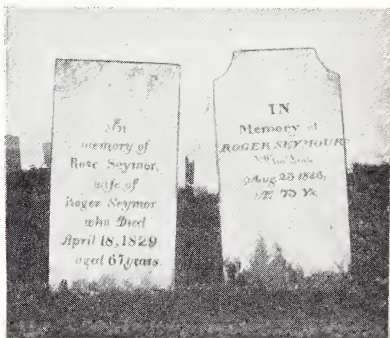 In
memory of
Rose Seymor,
wife of
Roger Seymor
who Died
April 18, 1829
aged 67 years.
IN
Memory of
ROGER SEYMOUR
Who
Aug 23
Æ 73 Ys.